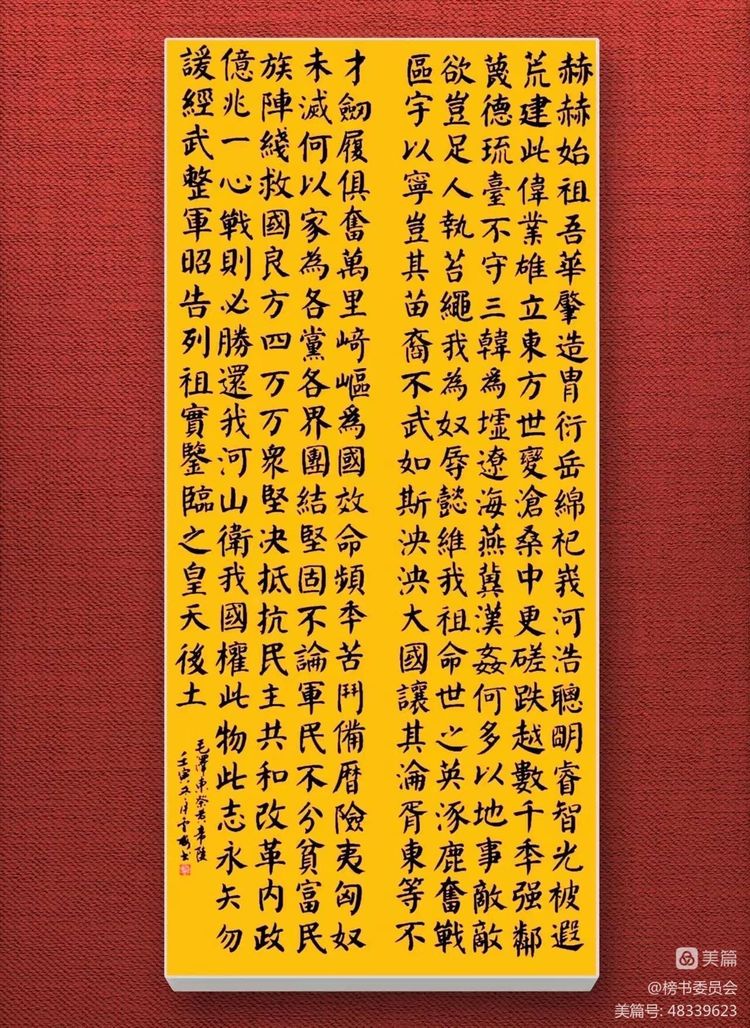 赫赫始祖吾華肇造冑衍岳綿祀峩河浩聰明睿智光被遐
荒建此偉業雄立東方世變滄桑中更磋跌越數千秊强鄰
蔑德琉臺不守三韓為墟遼海燕冀漢姦何多以地事敵敵
欲豈足人執苔繩我為奴辱懿維我祖命世之英涿鹿奮戰
區宇以寧豈其苗裔不武如斯泱泱大國讓其淪胥東等不
才劒履俱奮萬里崎嶇為國效命頻秊苦鬥備暦險夷匈奴
未滅何以家為各黨各界團結堅固不論軍民不分貧富民
族陣綫救國良方四万万衆堅决抵抗民主共和改革内政
億兆一心戰則必勝還我河山衛我國權此物此志永矢勿
諼經武整軍昭告列祖實鑒臨之皇天後土
毛澤東祭黃帝陵
壬寅五月書
美篇
@榜书委员会
美篇号: 48339623